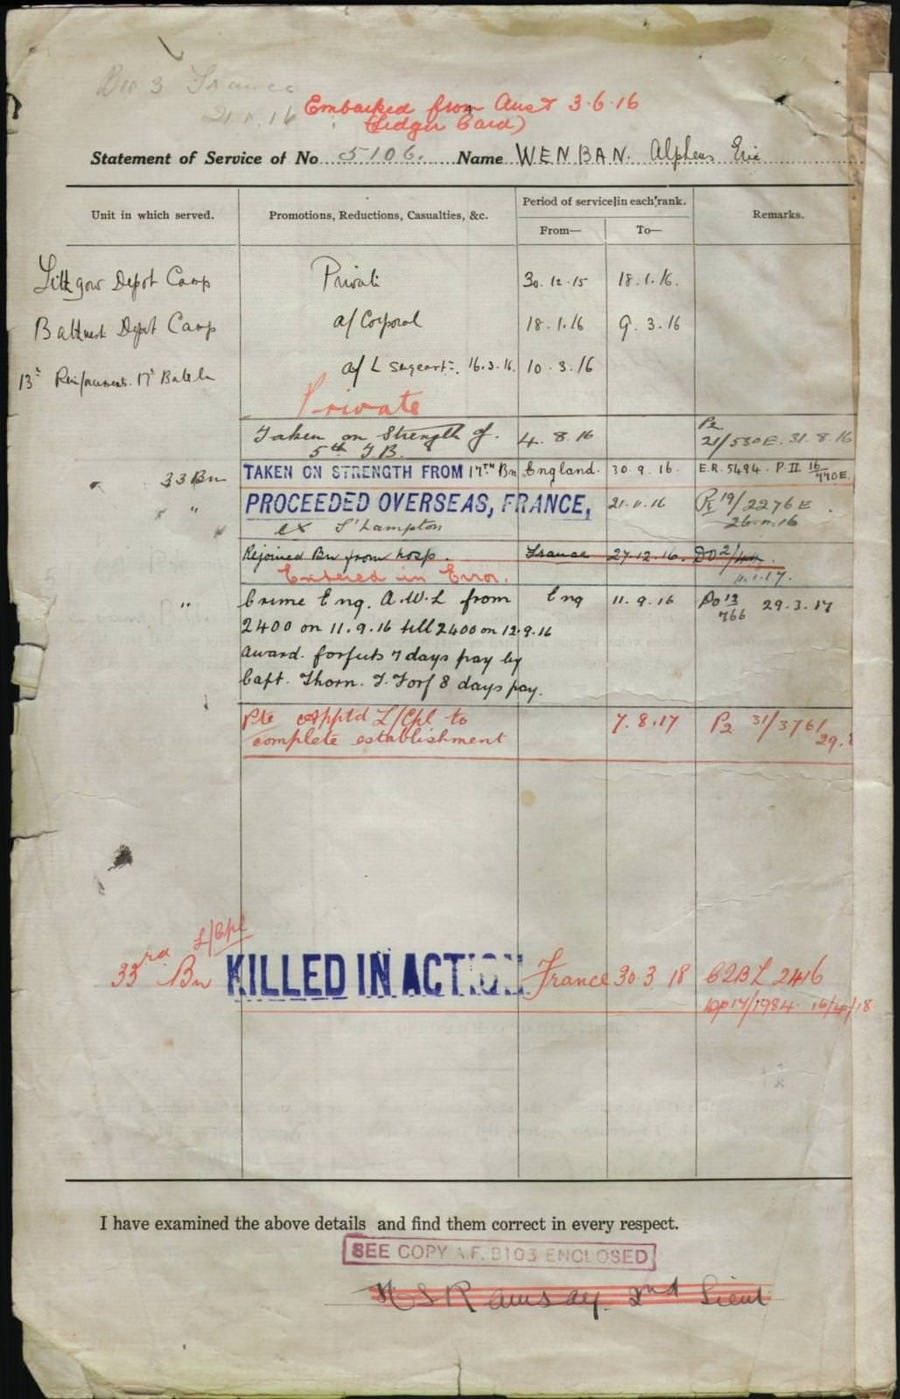 Embarked from Aust 3.6.16
(Ledger Card)
Statement of Service of No 5106. Name WENBAN. Alpheus Eric
Unit in which served. Promotions, Reductions, Casualties, &c. Period of service in each rank. Remarks.
From— To—
Lithgow Depot Camp Private 30.12.15 18.1.16.
Bathurst Depot Camp a/ Corporal 18.1.16 9.3.16
13th Reinforcements 17th Battln a/ L Sergeant 16.3.16. 10.3.16
Private
Taken on Strength of 4.8.16 P2
5th T.B. 21/530E. 31.8.16
33 Bn TAKEN ON STRENGTH FROM 17TH Bn England. 30.9.16. E.R. 5494. P.II 16/770E
" PROCEEDED OVERSEAS, FRANCE, 21.11.16 19/2276E
ex S'Hampton 26.11.16
Rejoined Bn from hosp. France 27.12.16. DO
Entered in Error. 11.1.17.
" Crime Eng. A.W.L from Eng 11.9.16 Do 13/766 29.3.17
2400 on 11.9.16 till 2400 on 12.9.16
award. forfeits 7 days pay by
Capt. Thorn. T. Forf 8 days pay.
Pte Apptd L/Cpl to 7.8.17 P2 31/376/
complete establishment 29.
L/Cpl
33rd Bn KILLED IN ACTION France 30 3 18 B2BL 2416
17/1984 16/4/18
I have examined the above details and find them correct in every respect.
SEE COPY A.F. B103 ENCLOSED
Ramsay 2nd Lieut